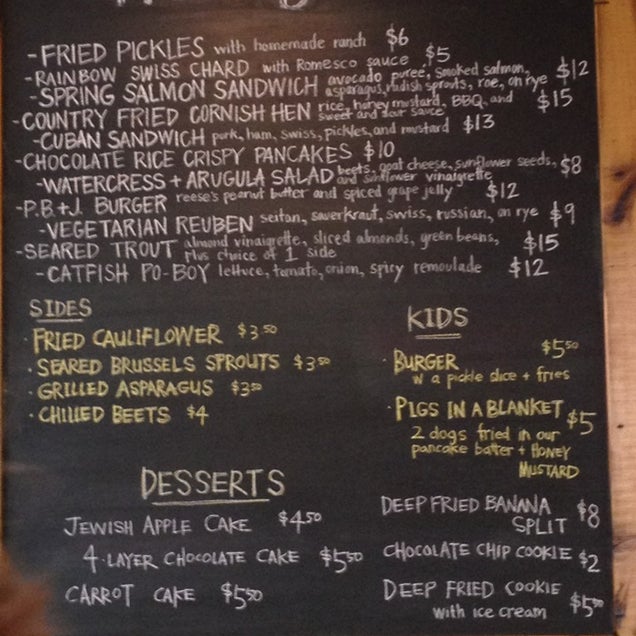 -FRIED PICKLES with homemade ranch $6
-RAINBOW SWISS CHARD with Romesco sauce $5
-SPRING SALMON SANDWICH avocado puree, smoked salmon, asparagus, radish sprouts, roe, on rye $12
-COUNTRY FRIED CORNISH HEN rice, honey mustard, BBQ, and sweet and sour sauce $15
-CUBAN SANDWICH pork, ham, swiss, pickles, and mustard $13
-CHOCOLATE RICE CRISPY PANCAKES $10
-WATERCRESS + ARUGULA SALAD beets, goat cheese, sunflower seeds, and sunflower vinaigrette $8
-P.B.+J. BURGER reese's peanut butter and spiced grape jelly $12
-VEGETARIAN REUBEN seitan, sauerkraut, swiss, russian, on rye $9
-SEARED TROUT almond vinaigrette, sliced almonds, green beans, plus choice of 1 side $15
-CATFISH PO-BOY lettuce, tomato, onion, spicy remoulade $12
SIDES
·FRIED CAULIFLOWER $3.50
·SEARED BRUSSELS SPROUTS $3.50
·GRILLED ASPARAGUS $3.50
·CHILLED BEETS $4
KIDS
·BURGER $5.50
w a pickle slice + fries
·PIGS IN A BLANKET $5
2 dogs fried in our
pancake batter + HONEY
MUSTARD
DESSERTS
JEWISH APPLE CAKE $4.50
4-LAYER CHOCOLATE CAKE $5.50
CARROT CAKE $5.50
DEEP FRIED BANANA
SPLIT $8
CHOCOLATE CHIP COOKIE $2
DEEP FRIED COOKIE
with ice cream $5.50